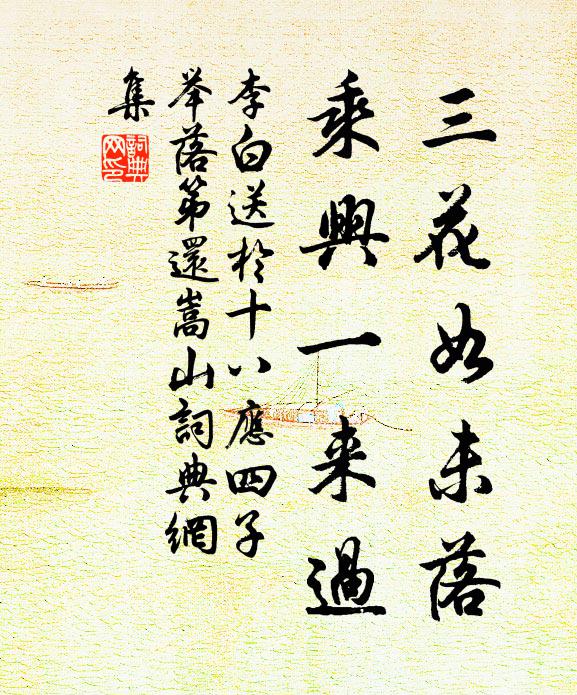 三花如未落
乘興一来過
李白送於十八應四子
举落第還嵩山詞典網
集
詞典网印